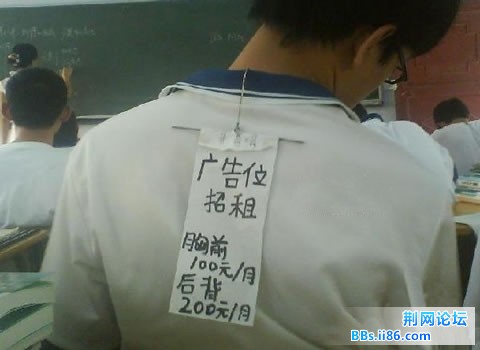 广告位
招租
胸前
100元/月
后背
200元/月
荆网论坛
BBs.ii86.com